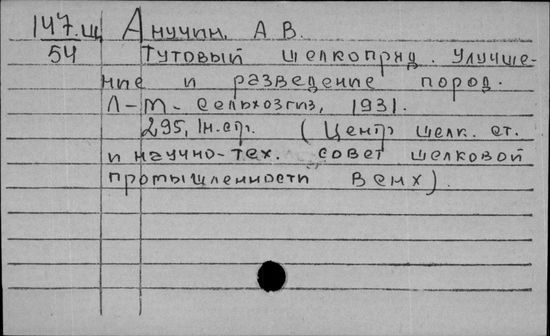 147.щ Анучин, А В.
54 Тутовый шелкопряд. Улучше-
ние и разведение пород.
Л-М- Сельхозгиз, 1931.
295, 1н.стр. (Центр шелк. ст.
и научно-тех. совет шелковой
промышленности ВСНХ).